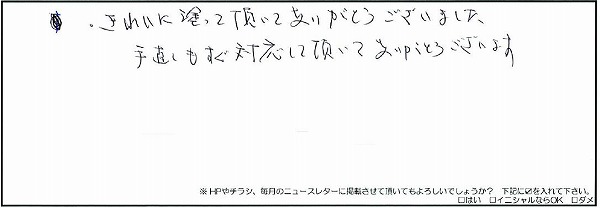 ・きれいに塗って頂いてありがとうございました、
手直しもすぐ対応して頂いてありがとうございます
※HPやチラシ、毎月のニュースレターに掲載させて頂いてもよろしいでしょうか？　下記に☑を入れて下さい。
□はい　□イニシャルならOK　□ダメ